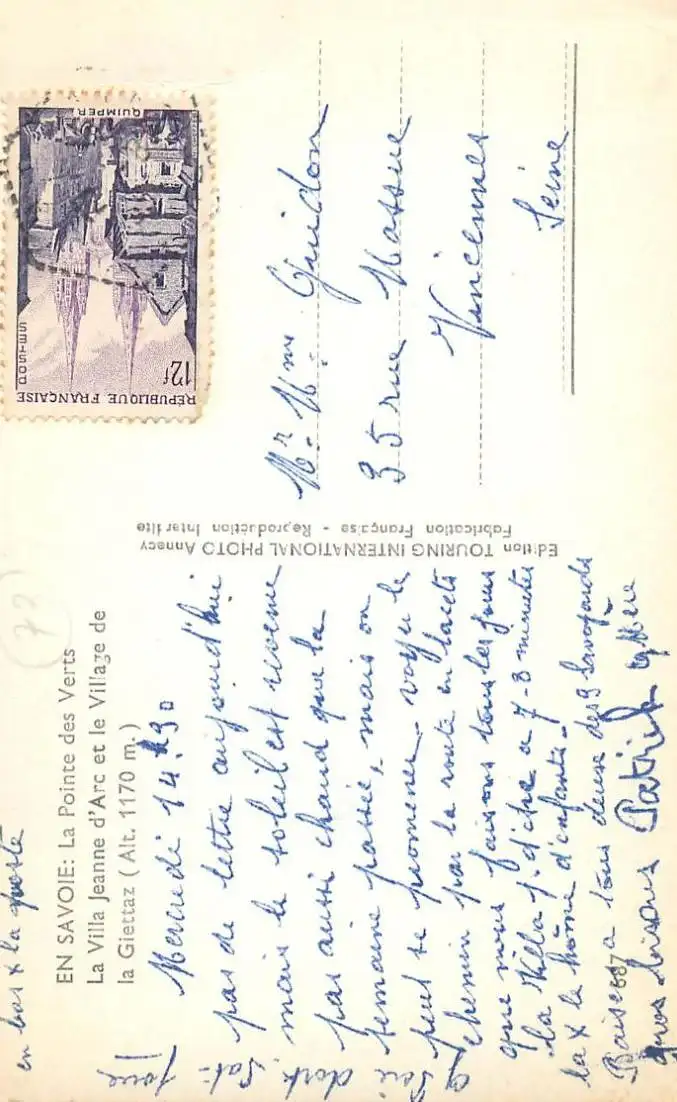 EN SAVOIE: La Pointe des Verts
La Villa Jeanne d'Arc et le Village de
la Giettaz ( Alt. 1170 m. )
73
Mercredi 14.30
pas de lettre aujourd'hui
mais le soleil est revenu
pas aussi chaud que la
semaine passée, mais on
peut se promener - voyez le
chemin par la route en lacets
que nous faisons tous les jours
la j. d'être a 7-8 minutes
la X le hôme d'enfants -
Baisers a tous deux des 3 savoyards
gros bisous Patrick
en bas X la poste
687
Edition TOURING INTERNATIONAL PHOTO Annecy
Fabrication Française - Reproduction Interdite
RÉPUBLIQUE FRANÇAISE
12f
POSTES
QUIMPER
Mr. Mme. Guidon
35 rue Massue
Vincennes
Seine